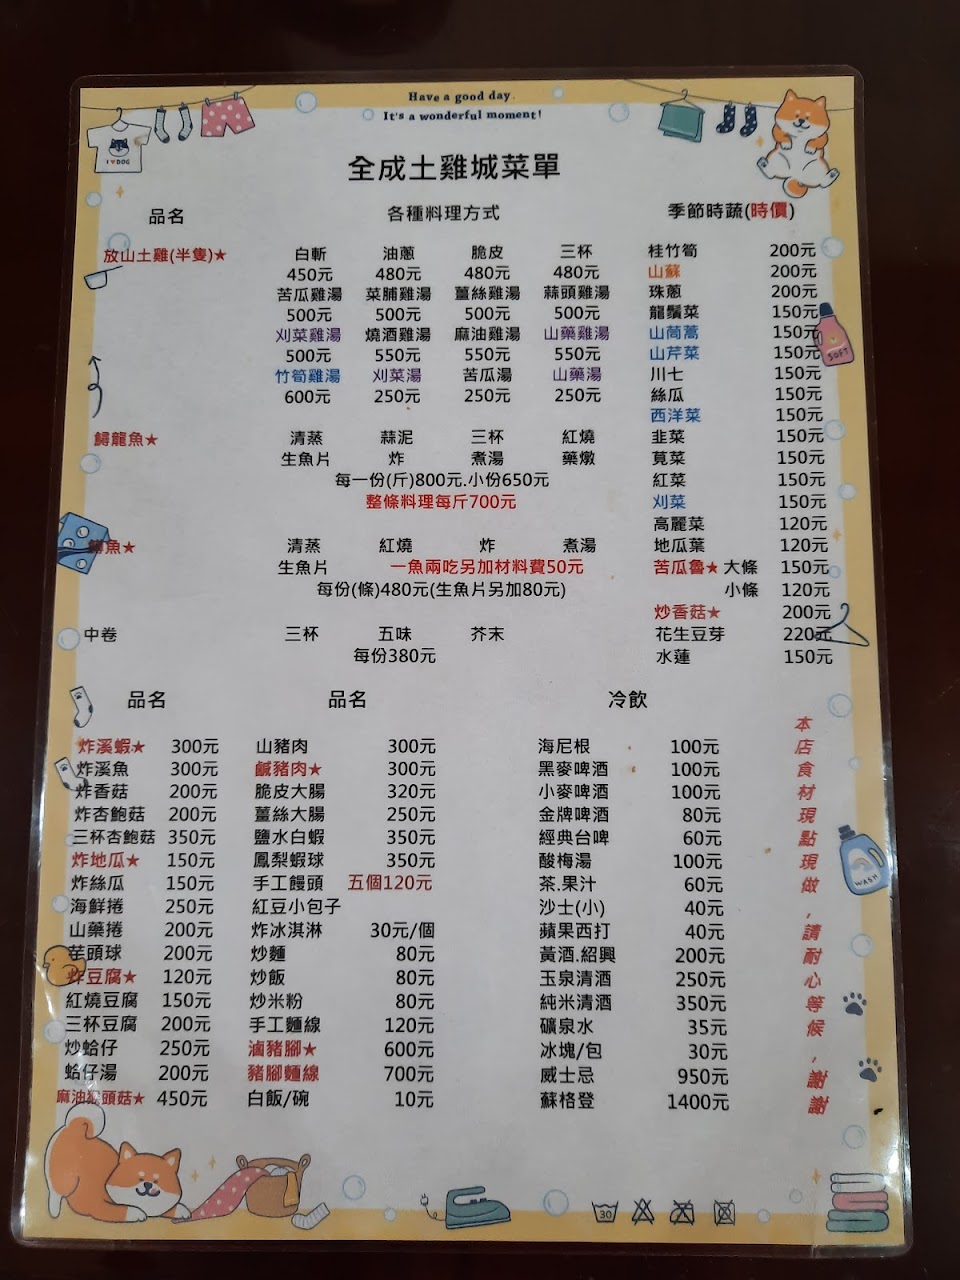 Have a good day.
It's a wonderful moment!
I ♥ DOG
全成土雞城菜單
品名 各種料理方式 季節時蔬(時價)
放山土雞(半隻)★ 白斬 油蔥 脆皮 三杯
450元 480元 480元 480元
苦瓜雞湯 菜脯雞湯 薑絲雞湯 蒜頭雞湯
500元 500元 500元 500元
刈菜雞湯 燒酒雞湯 麻油雞湯 山藥雞湯
500元 550元 550元 550元
竹筍雞湯 刈菜湯 苦瓜湯 山藥湯
600元 250元 250元 250元
鱘龍魚★ 清蒸 蒜泥 三杯 紅燒
生魚片 炸 煮湯 藥燉
每一份(斤)800元.小份650元
整條料理每斤700元
魚★ 清蒸 紅燒 炸 煮湯
生魚片 一魚兩吃另加材料費50元
每份(條)480元(生魚片另加80元)
中卷 三杯 五味 芥末
每份380元
桂竹筍 200元
山蘇 200元
珠蔥 200元
龍鬚菜 150元
山茼蒿 150元
山芹菜 150元
川七 150元
絲瓜 150元
西洋菜 150元
韭菜 150元
莧菜 150元
紅菜 150元
刈菜 150元
高麗菜 120元
地瓜葉 120元
苦瓜魯★ 大條 150元
小條 120元
炒香菇★ 200元
花生豆芽 220元
水蓮 150元
SOFT
品名 品名 冷飲
炸溪蝦★ 300元 山豬肉 300元 海尼根 100元
炸溪魚 300元 鹹豬肉★ 300元 黑麥啤酒 100元
炸香菇 200元 脆皮大腸 320元 小麥啤酒 100元
炸杏鮑菇 200元 薑絲大腸 250元 金牌啤酒 80元
三杯杏鮑菇 350元 鹽水白蝦 350元 經典台啤 60元
炸地瓜★ 150元 鳳梨蝦球 350元 酸梅湯 100元
炸絲瓜 150元 手工饅頭 五個120元 茶.果汁 60元
海鮮捲 250元 紅豆小包子 沙士(小) 40元
山藥捲 200元 炸冰淇淋 30元/個 蘋果西打 40元
芋頭球 200元 炒麵 80元 黃酒.紹興 200元
炸豆腐★ 120元 炒飯 80元 玉泉清酒 250元
紅燒豆腐 150元 炒米粉 80元 純米清酒 350元
三杯豆腐 200元 手工麵線 120元 礦泉水 35元
炒蛤仔 250元 滷豬腳★ 600元 冰塊/包 30元
蛤仔湯 200元 豬腳麵線 700元 威士忌 950元
麻油猴頭菇★ 450元 白飯/碗 10元 蘇格登 1400元
本店食材現點現做,請耐心等候,謝謝
WASH
30